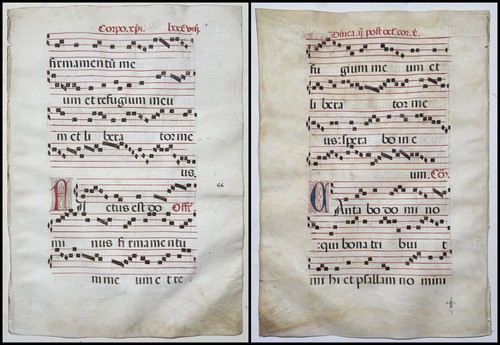 Corpo. xpi. lxxxviij.
firmamentū me
um et refugium meu
m et li bera tor me
us.
Factus est do Offe.
mi nus firmamentū
m me um et re
Dnica .ij. post oct. cor.
fu gium me um et
li bera tor me
us: spera bo in e
um. Com.
CAnta bo do mi no
: qui bona tri bui t
mi hi et psallam no mini